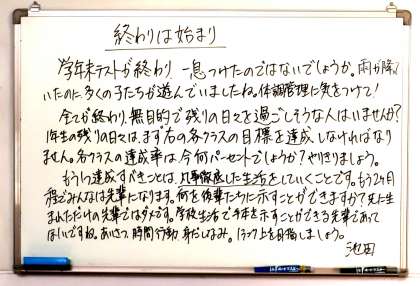 終わりは始まり
学年末テストが終わり、一息つけたのではないでしょうか。雨が降って
いたのに、多くの子たちが遊んでいましたね。体調管理に気をつけて！
全てが終わり、無目的で残りの日々を過ごしそうな人はいませんか？
1年生の残りの日々は、まず右の各クラスの目標を達成しなければなり
ません。各クラスの達成率は、今何パーセントでしょうか？やりきりましょう。
もう1つ達成すべきことは、凡事徹底した生活をしていくことです。もう2ヶ月
程でみんなは先輩になります。何を後輩たちに示すことができますか？先に生
まれただけの先輩ではダメです。学校生活で手本を示すことができる先輩であって
ほしいですね。あいさつ、時間行動、身だしなみ。1ランク上を目指しましょう。
池田